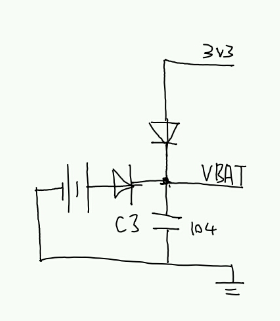 3v3
VBAT
C3 104